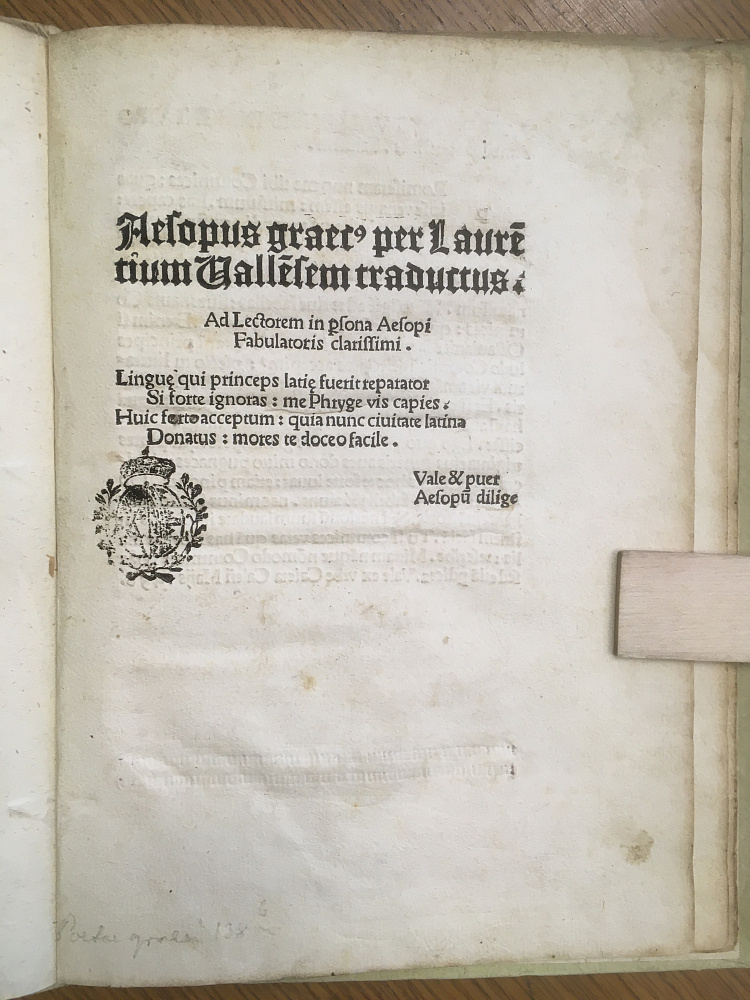 Aeſopus graecꝰ per Laurē
tium Uallēſem traductus.
Ad Lectorem in ꝑſona Aeſopi
Fabulatoris clariſſimi .
Linguę qui princeps latię fuerit reparator
Si forte ignoras : me Phryge vis capies .
Huic ferto acceptum : quia nunc ciuitate latina
Donatus : mores te doceo facile .
Vale & puer
Aeſopū dilige